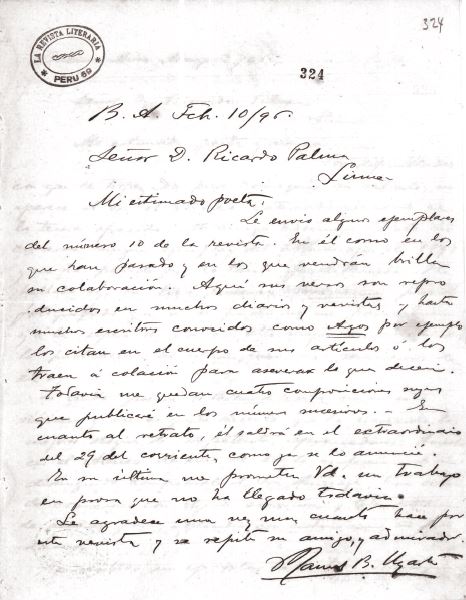 324
LA REVISTA LITERARIA
PERU 59
324
B. A. Feb. 10/96.
Señor D. Ricardo Palma
Lima
Mi estimado poeta:
Le envio algunos ejemplares
del número 10 de la revista. En él como en los
que han pasado y en los que vendrán brilla
su colaboración. Aquí sus versos son repro
ducidos en muchos diarios y revistas y hasta
muchos escritores conocidos como Argos por ejemplo
los citan en el cuerpo de sus artículos ó los
traen á colación para aseverar lo que dicen.
Todavia me quedan cuatro composiciones suyas
que publicaré en los números sucesivos. — En
cuanto al retrato, él saldrá en el extraordinario
del 29 del corriente, como ya se lo anuncié.
En su última me prometía Vd. un trabajo
en prosa que no ha llegado todavia.
Le agradece una vez mas cuanto hace por
esta revista y se repite su amigo, y admirador.
Manuel B. Ugarte